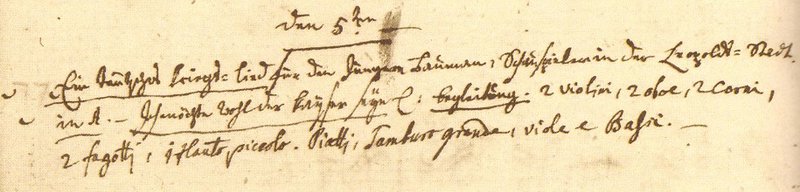 den 5:ten
Ein teutsches kriegs=lied für den Jungern Bauman; Schauspieler in der Leopoldt=Stadt.
in A. – Ich möchte wohl der kayser seyn &: begleitung. 2 violini, 2 oboe, 2 Corni,
2 fagotti, 1 flauto piccolo. Piatti, Tamburo grande, viole e Baßi. –